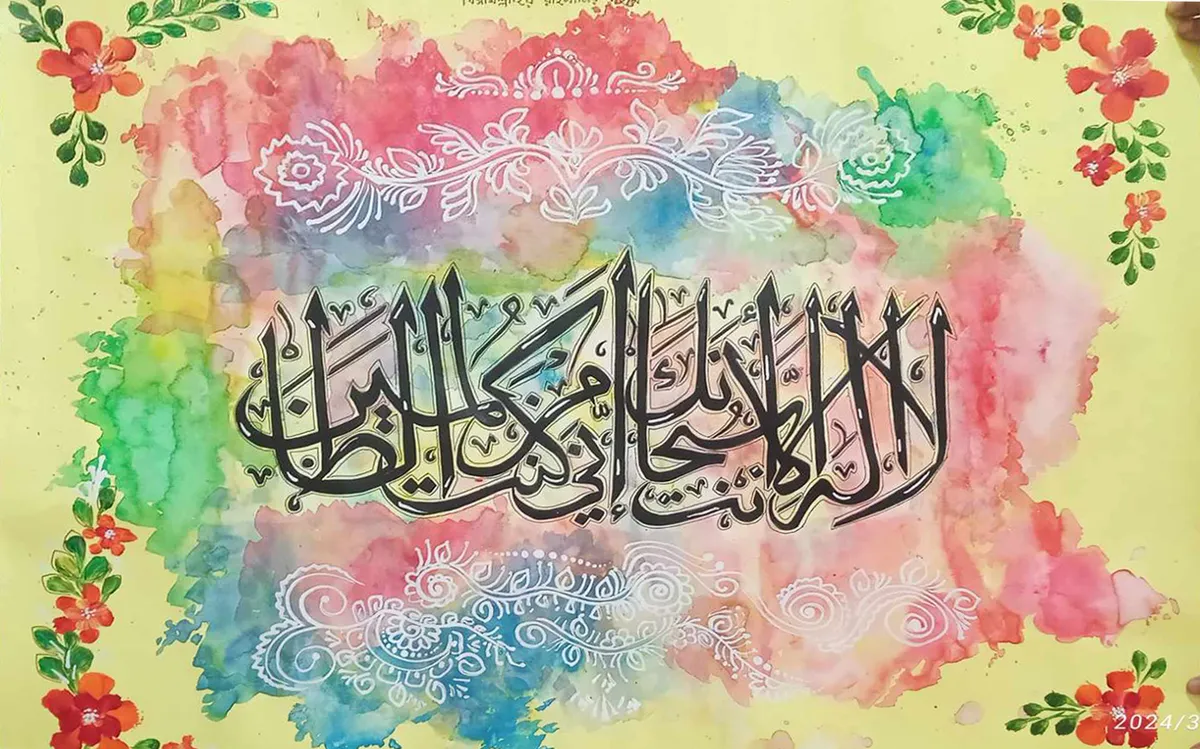 বিসমিল্লাহির রাহমানির রাহিম
لا إله إلا أنت سبحانك إني كنت من الظالمين
2024/3